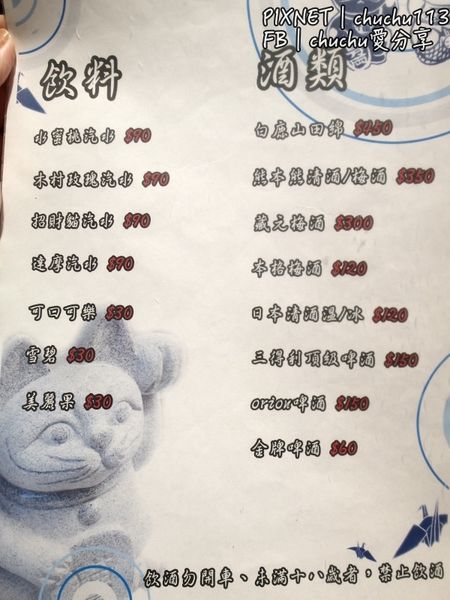 PIXNET | chuchu113
FB | chuchu愛分享
飲料
水蜜桃汽水 $90
木村玫瑰汽水 $90
招財貓汽水 $90
達摩汽水 $90
可口可樂 $30
雪碧 $30
美麗果 $30
酒類
白鹿山田錦 $450
熊本熊清酒/梅酒 $350
藏元梅酒 $300
本格梅酒 $120
日本清酒溫/冰 $120
三得利頂級啤酒 $150
orion啤酒 $150
金牌啤酒 $60
飲酒勿開車、未滿十八歲者，禁止飲酒